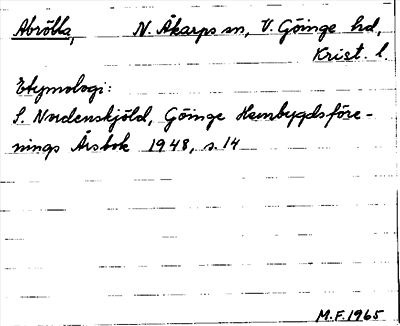 Abrölla, N. Åkarps sn, V. Göinge hd,
Krist. l.
Etymologi:
S. Nordenskjöld, Göinge Hembygdsföre-
nings Årsbok 1948, s. 14
M.F. 1965